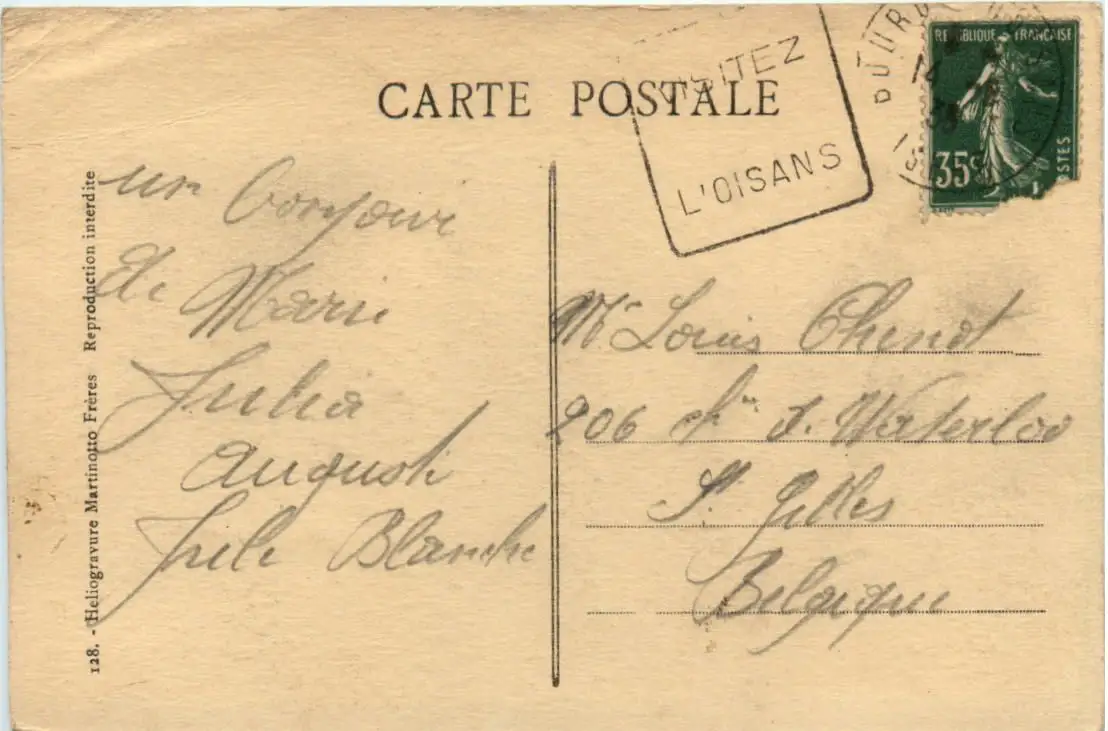 CARTE POSTALE
VISITEZ
L'OISANS
REPUBLIQUE FRANÇAISE
35c
POSTES
128. - Heliogravure Martinotto Frères Reproduction interdite
un bonjour
de Marie
Julia
Auguste
Jule Blanche
Mr Louis
206 chée d. Waterloo
St. Gilles
Belgique